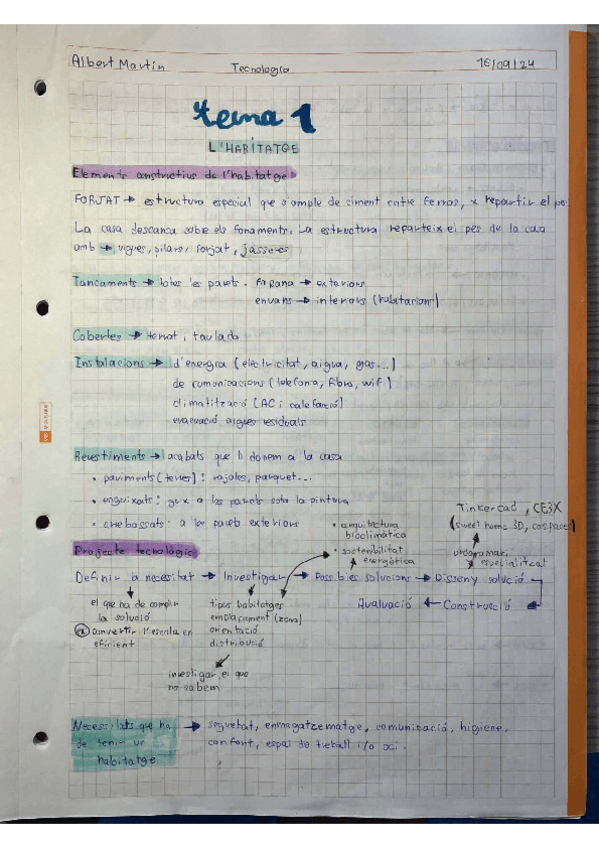 Albert Martín
Tecnologia
16/09/24
tema 1
L'HABITATGE
Elements constructius de l'habitatge
FORJAT → estructura especial que s'omple de ciment entre ferros, x repartir el pes
La casa descansa sobre els fonaments. La estructura reparteix el pes de la casa
amb → vigues, pilars, forjat, jàsseres
Tancaments → totes les parets. Façana → exteriors
envans → interiors (habitacions)
Cobertes → terrat i taulada
Instalacions → d'energia (electricitat, aigua, gas...)
de comunicacions (telefonia, fibra, wifi)
climatització (AC i calefacció)
evacuació aigües residuals
Revestiments → acabats que li donem a la casa
• paviments (terres): rajoles, parquet...
• enguixats: guix a les parets sota la pintura
• arrebossats: a les parets exteriors
• arquitectura
bioclimàtica
• sostenibilitat
energètica
Tinkercad, CE3X
(sweet home 3D, cospaces)
programari
especialitzat
Projecte tecnològic
Definir a necesitat → Investigar → Possibles solucions → Disseny solució
Avaluació ← Construcció
el que ha de complir
la solució
convertir l'escola en
eficient
tipus habitatges
emplaçament (zona)
orientació
distribució
investigar el que
no sabem
Necessitats que ha
de tenir un
habitatge
→ seguretat, enmagatzematge, comunicació, higiene,
confort, espai de treball i/o oci.